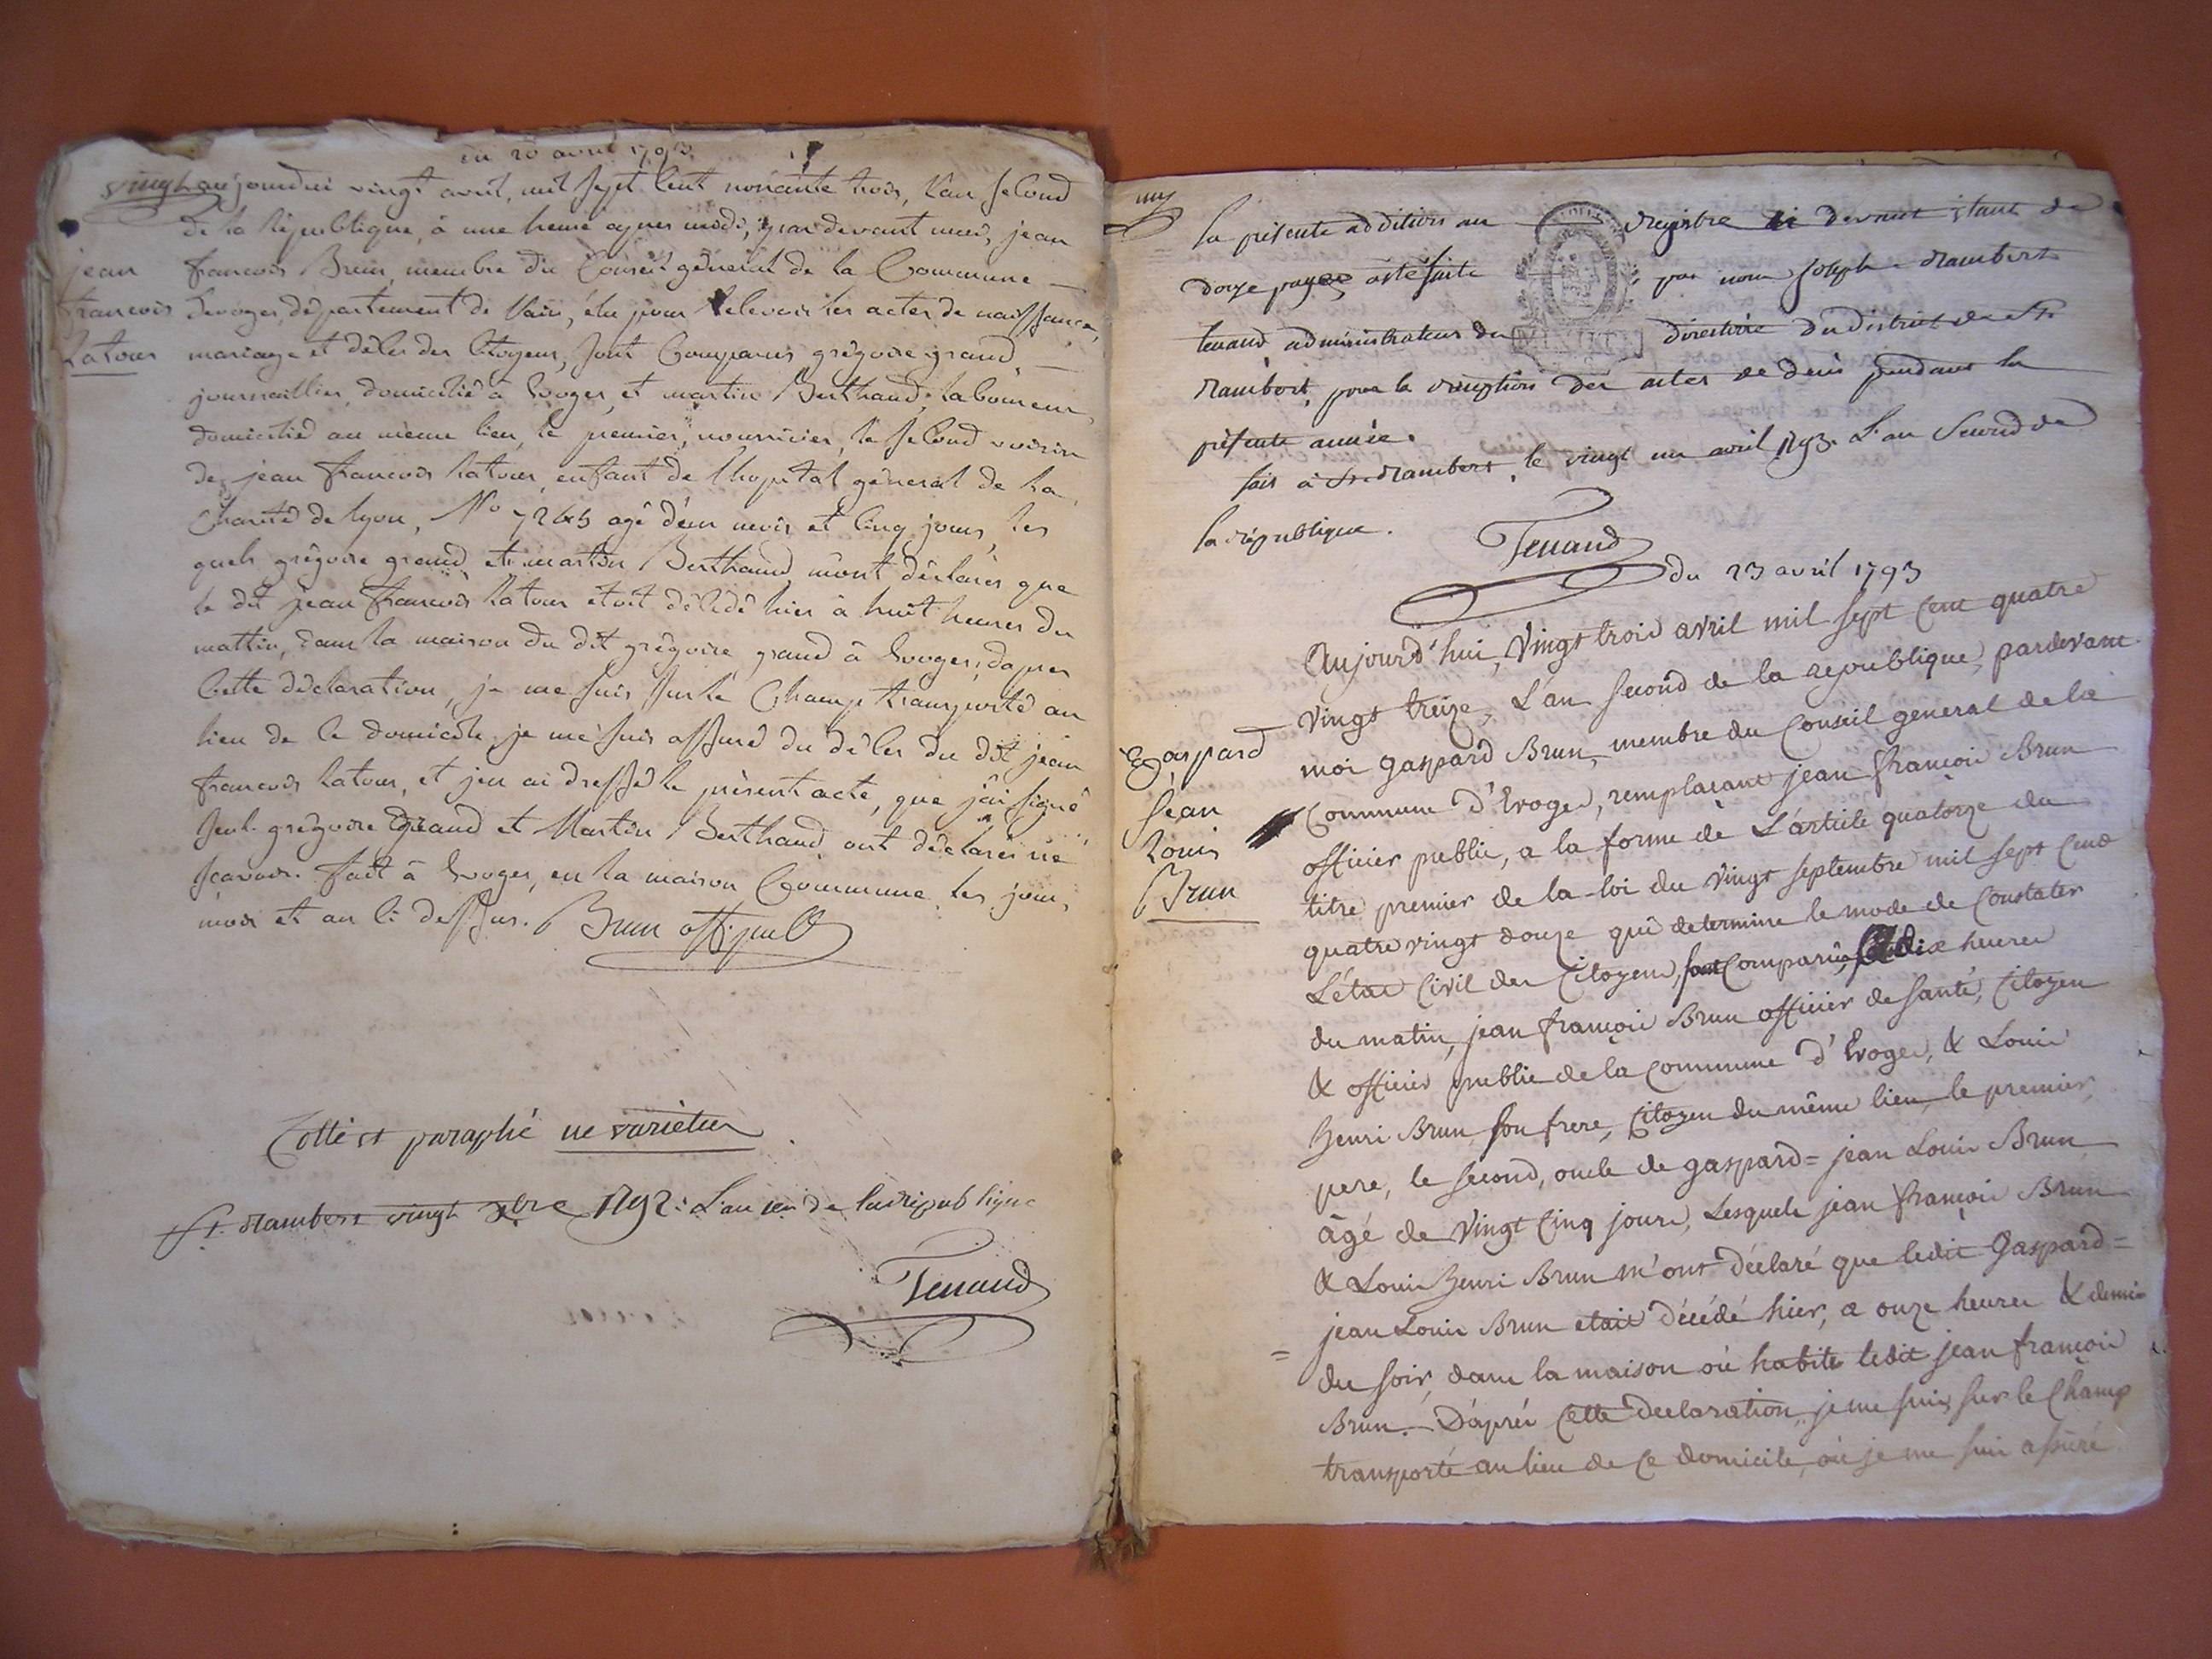 du 20 avril 1793
vingt
aujourdui vingt avril, mil sept cent nonante trois, l'an second
de la république, à une heure apres midi, par devant moi, jean
francois Brun, membre du Conseil général de la Commune
devoges, département de l'ain, élu pour recevoir les actes de naissance,
mariage et décès des Citoyens, sont Comparus grégoire grand,
journaillier, domicilié à Evoges, et martin Berthaud, laboureur,
domicilié au même lieu, le premier, nourricier, le second voisin
de jean francois Latour, enfant de l'hopital général de la
Charité de lyon, No 7245 agé d'un mois et cinq jours, les
quels grégoire grand et martin Berthaud m'ont déclarés que
le dit jean francois Latour étoit décédé hier à huit heures du
mattin, dans la maison du dit grégoire grand à Evoges; dapres
cette déclaration, je me suis sur le Champ transporté au
lieu de ce domicile, je me suis assuré du décès du dit jean
francois Latour, et j'en ai dressé le présent acte, que j'ai signé
seul. grégoire grand et Martin Berthaud ont déclarés ne
scavoir. fait à Evoges, en la maison Commune, les jour,
mois et an ci dessus. Brun off. public
jean
francois
Latour
Cotté et paraphé ne varietur
St. Rambert vingt xbre 1792. L'an 1er de la république
Tenand
La présente addition au registre ci devant étant de
douze pages, a été faite par nous Joseph Rambert
tenand administrateur du directoire du district de St.
Rambert, pour la reception des actes de decès pendant la
présente année.
fait à St. Rambert, le vingt un avril 1793. L'an second de
la république.
Tenand
du 23 avril 1793
Aujourd'hui, Vingt trois avril mil sept Cent quatre
vingt treize, L'an second de la republique, pardevant
moi gaspard Brun, membre du Conseil general de la
Commune d'Evoges, remplacant jean françois Brun
officier public, a la forme de L'article quatorze du
titre premier de la loi du vingt septembre mil sept Cent
quatre vingt douze qui determine le mode de Constater
L'état Civil des Citoyens, sont Comparus, a dix heures
du matin, jean françois Brun officier de santé, Citoyen
& officier public de la Commune d'Evoges, & Louis
henri Brun son frere, Citoyen du même lieu, le premier,
pere, le second, oncle de gaspard= jean Louis Brun
âgé de Vingt Cinq jours, Lesquels jean françois Brun
& Louis henri Brun m'ont déclaré que ledit Gaspard=
jean Louis Brun etait décédé hier, a onze heures & demi=
= du soir, dans la maison où habite ledit jean françois
Brun. D'après Cette declaration, je me suis sur le Champ
transporté au lieu de Ce domicile, où je me suis assuré
Gaspard
Jean
Louis
Brun